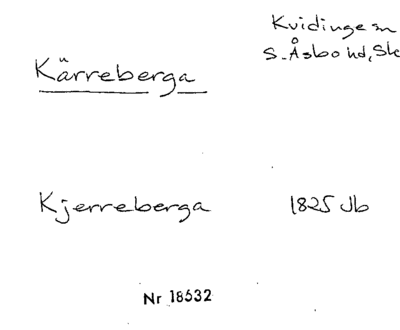 Kvidinge sn
Kärreberga
S. Åsbo hd, Sk
Kjerreberga
1825 Jb
Nr 18532